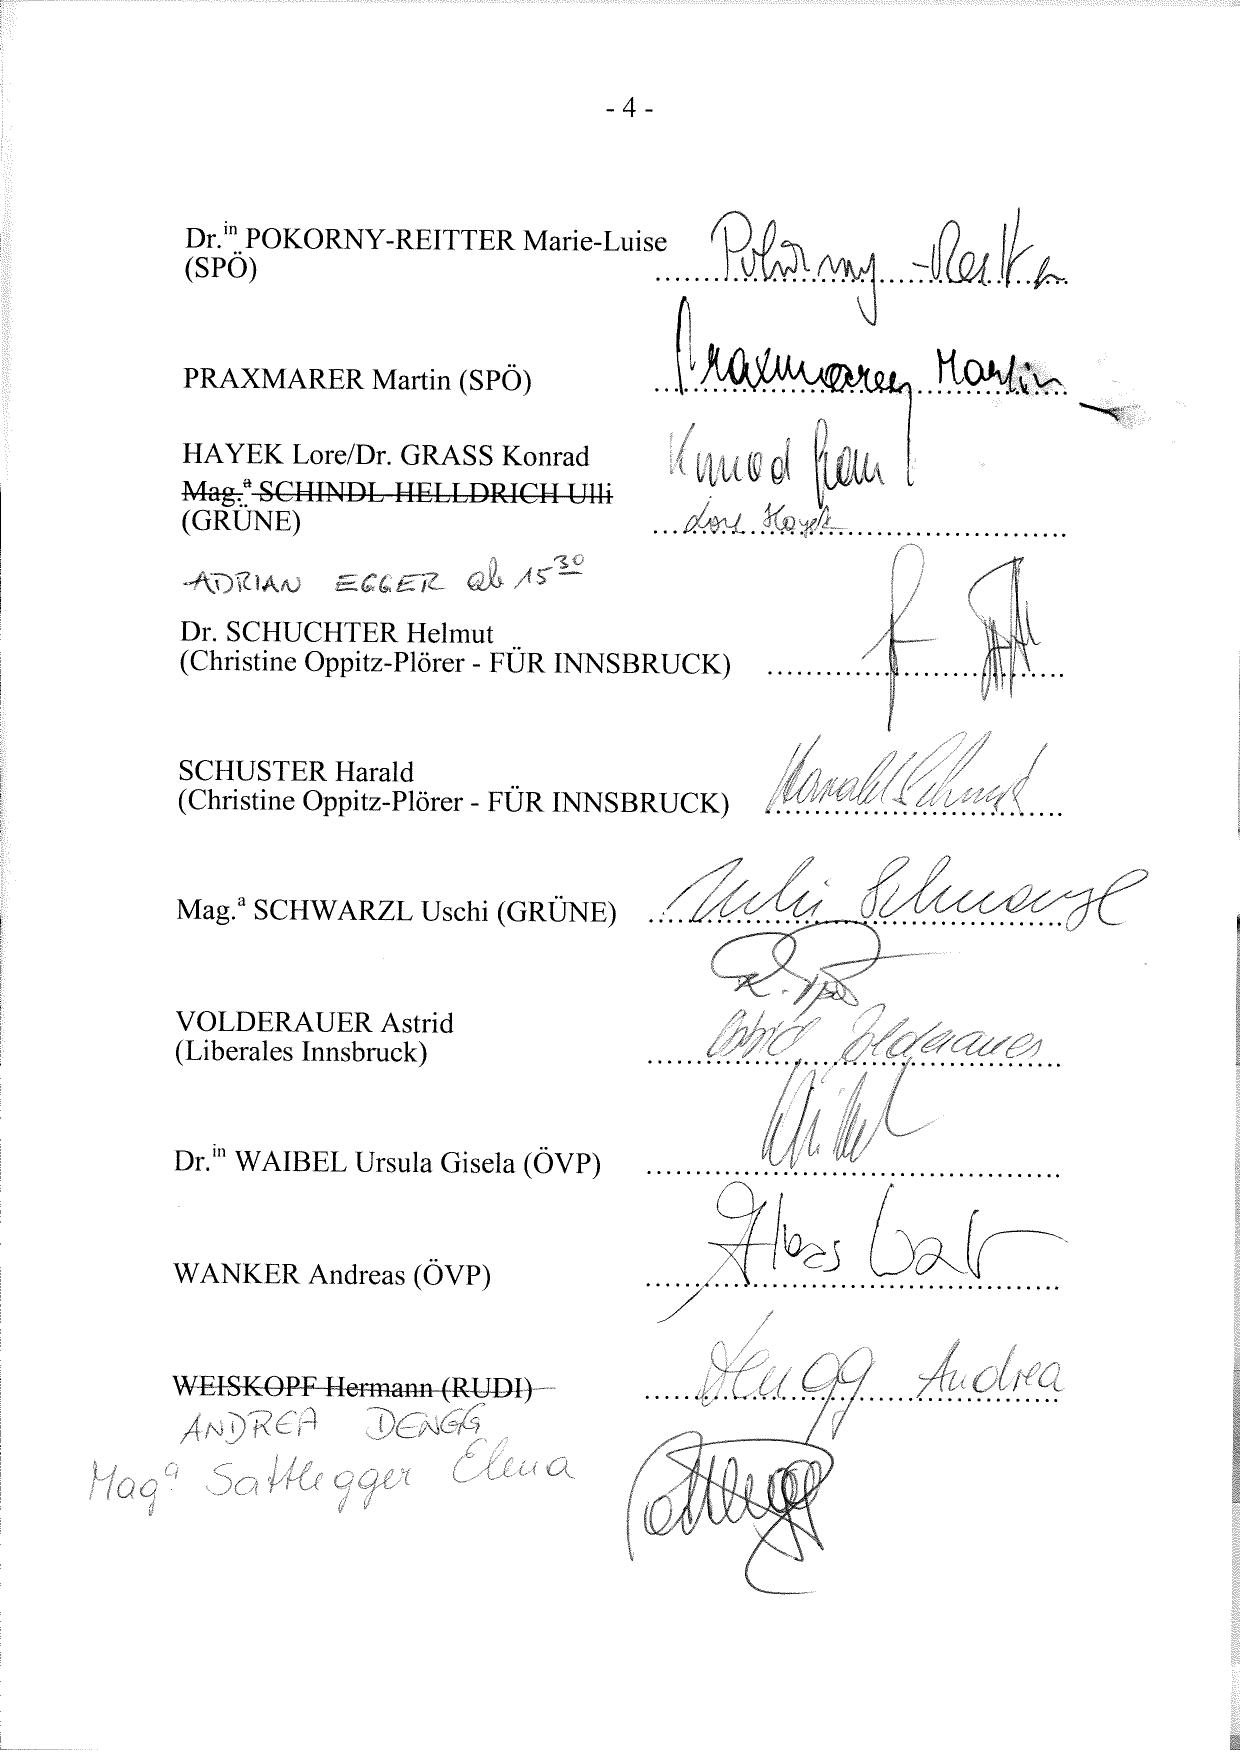 - 4 -
Dr.in POKORNY-REITTER Marie-Luise
(SPÖ) Pokorny-Reitter
PRAXMARER Martin (SPÖ) Praxmarer Martin
HAYEK Lore/Dr. GRASS Konrad Konrad Grass
Mag.a SCHINDL-HELLDRICH Ulli
(GRÜNE) Lore Hayek
ADRIAN EGGER ab 15 30
Dr. SCHUCHTER Helmut
(Christine Oppitz-Plörer - FÜR INNSBRUCK)
SCHUSTER Harald
(Christine Oppitz-Plörer - FÜR INNSBRUCK) Harald Schuster
Mag.a SCHWARZL Uschi (GRÜNE) Schwarzl
VOLDERAUER Astrid
(Liberales Innsbruck) Astrid Volderauer
Dr.in WAIBEL Ursula Gisela (ÖVP)
WANKER Andreas (ÖVP)
WEISKOPF Hermann (RUDI) Dengg Andrea
ANDREA DENGG
Mag.a Sattlegger Elena